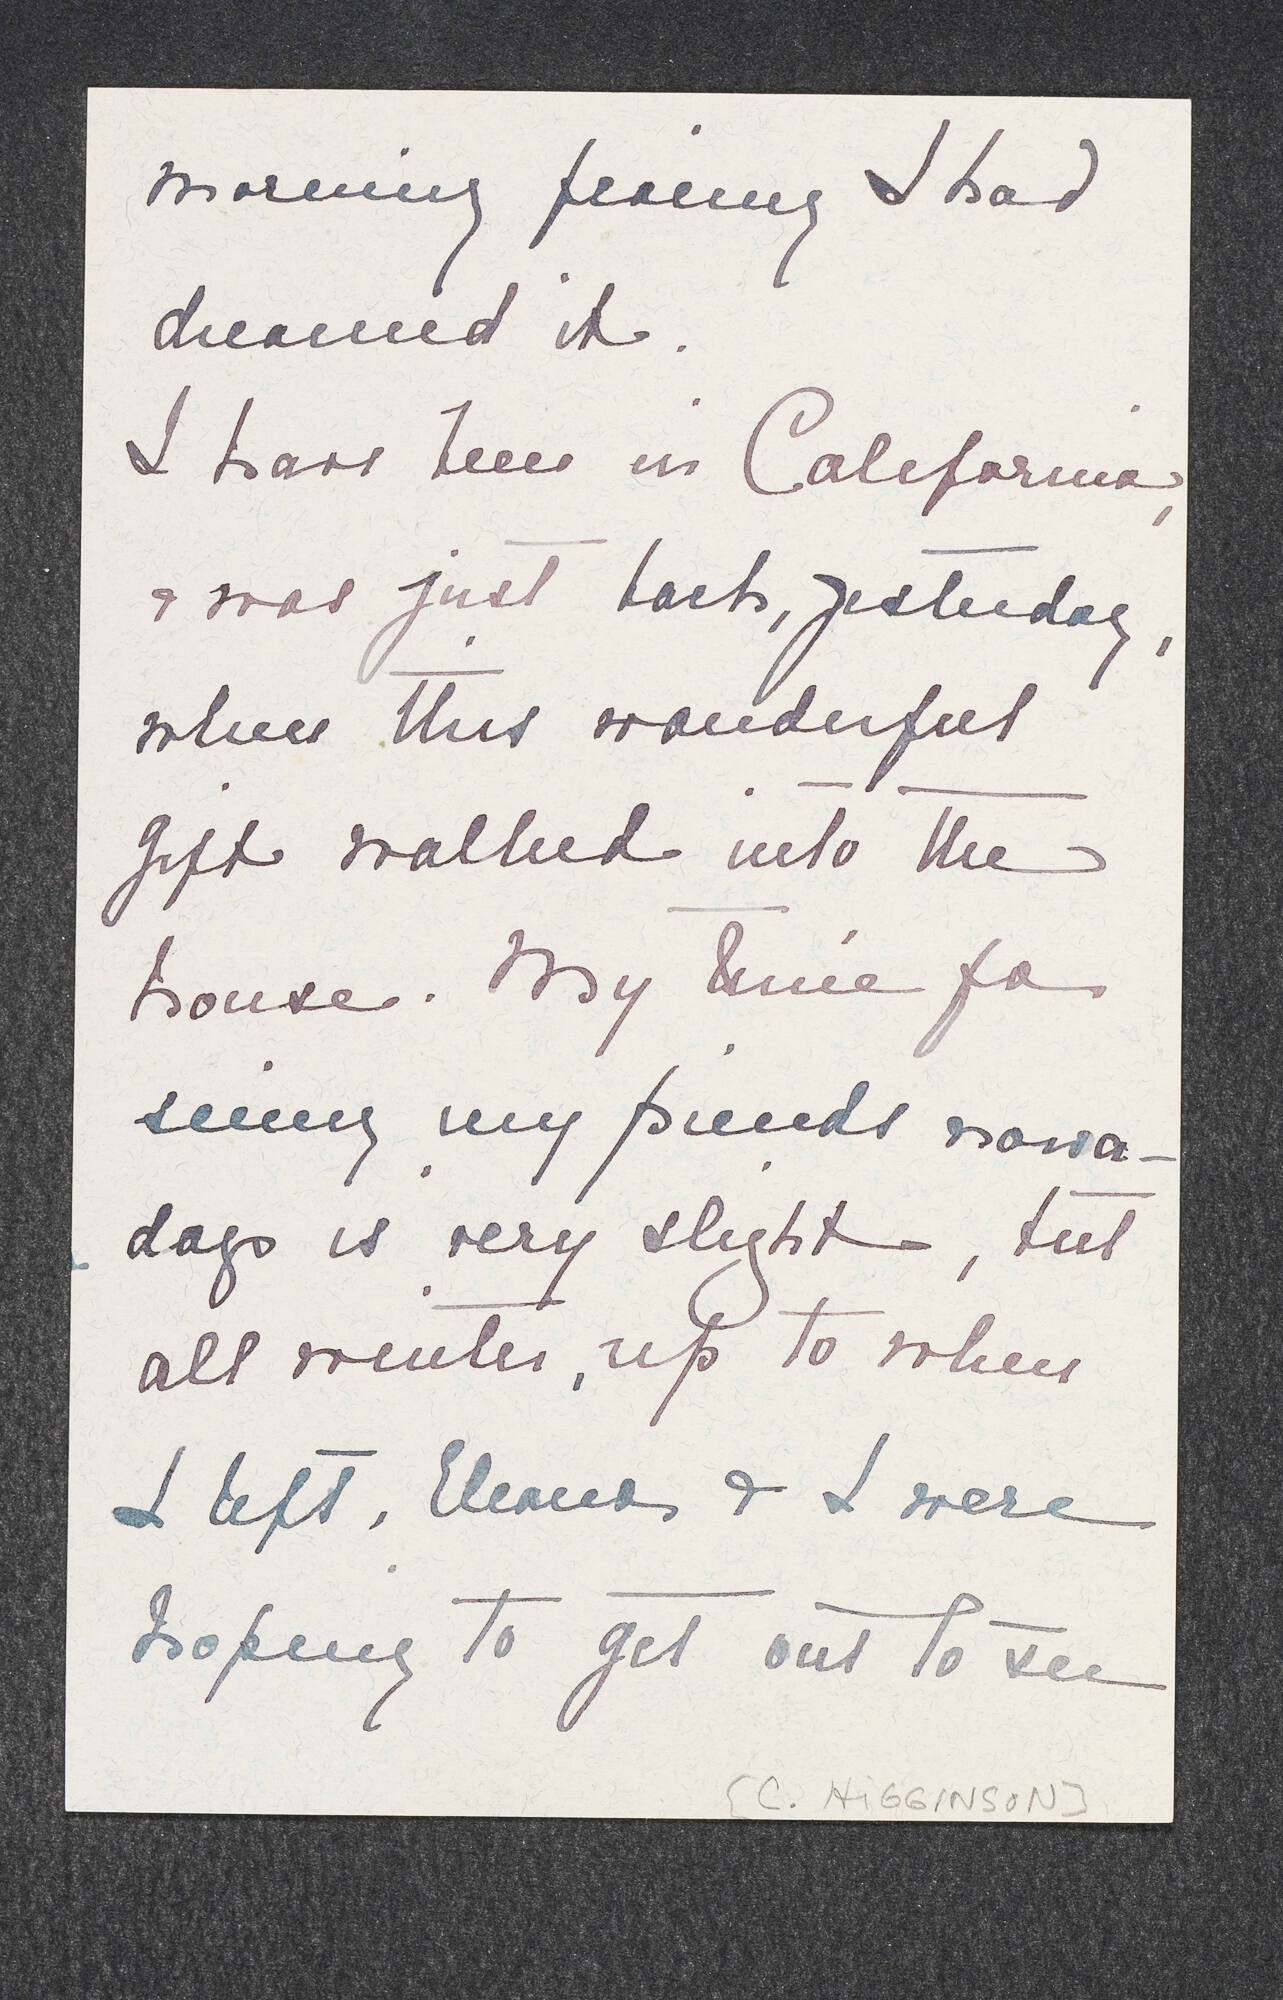 morning fearing I had
dreamed it.
I have been in California,
& was just back, yesterday,
when this wonderful
gift walked into the
house. My time for
seeing my friends nowa-
days is very slight, but
all winter, up to when
I left, Eleanor & I were
hoping to get out to see
[C. HIGGINSON]